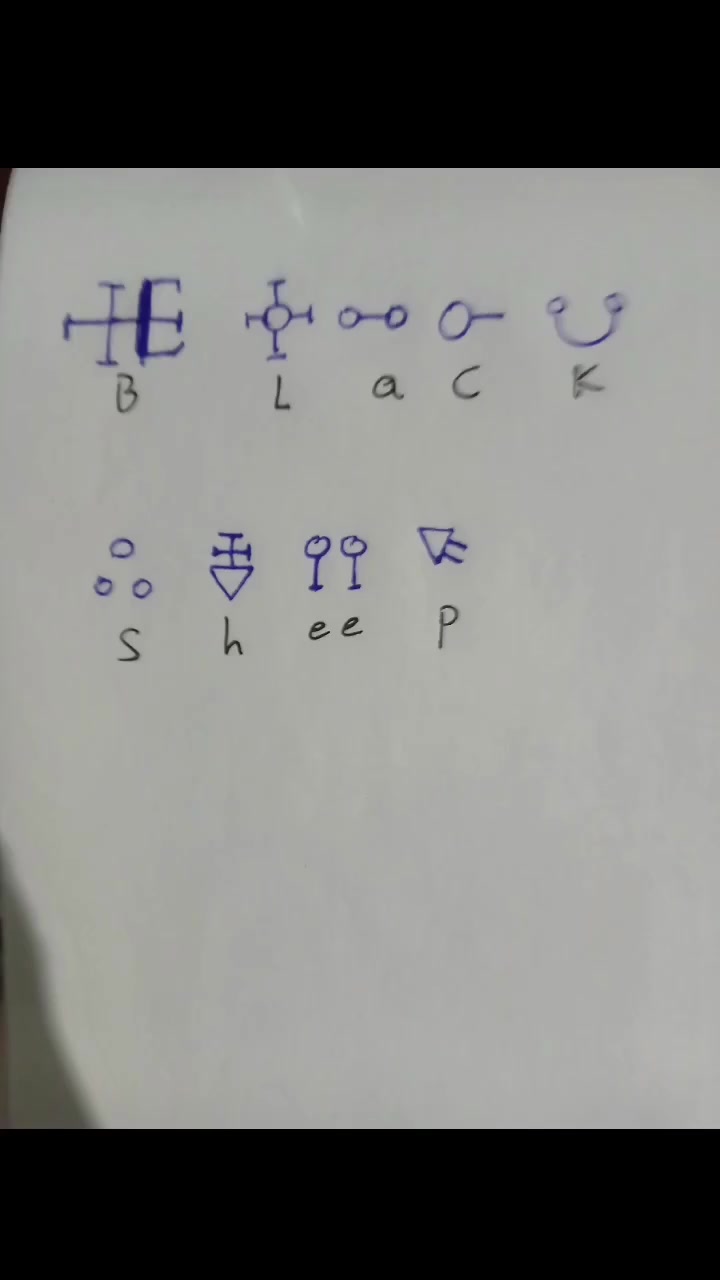 B L a C K
S h e e p